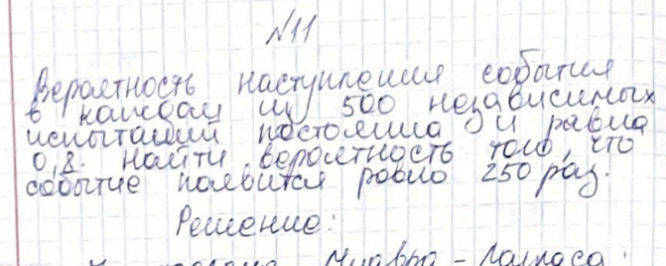 №11
Вероятность наступления события
в каждом из 500 независимых
испытаний постоянна и равна
0,8. Найти вероятность того, что
событие появится ровно 250 раз.
Решение:
Муавра - Лапласа